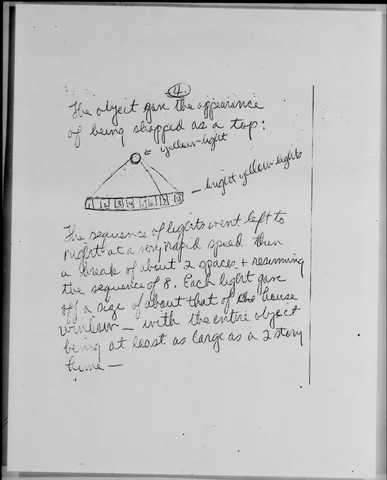 4.
The object gave the appearance
of being shapped as a top:
yellow light
bright yellow lights
1 2 3 4 5 6 7 8
The sequence of lights went left to
right at a very rapid speed then
a break of about 2 spaces + resuming
the sequence of 8. Each light gave
off a size of about that of the house
window — with the entire object
being at least as large as a 2 story
home —